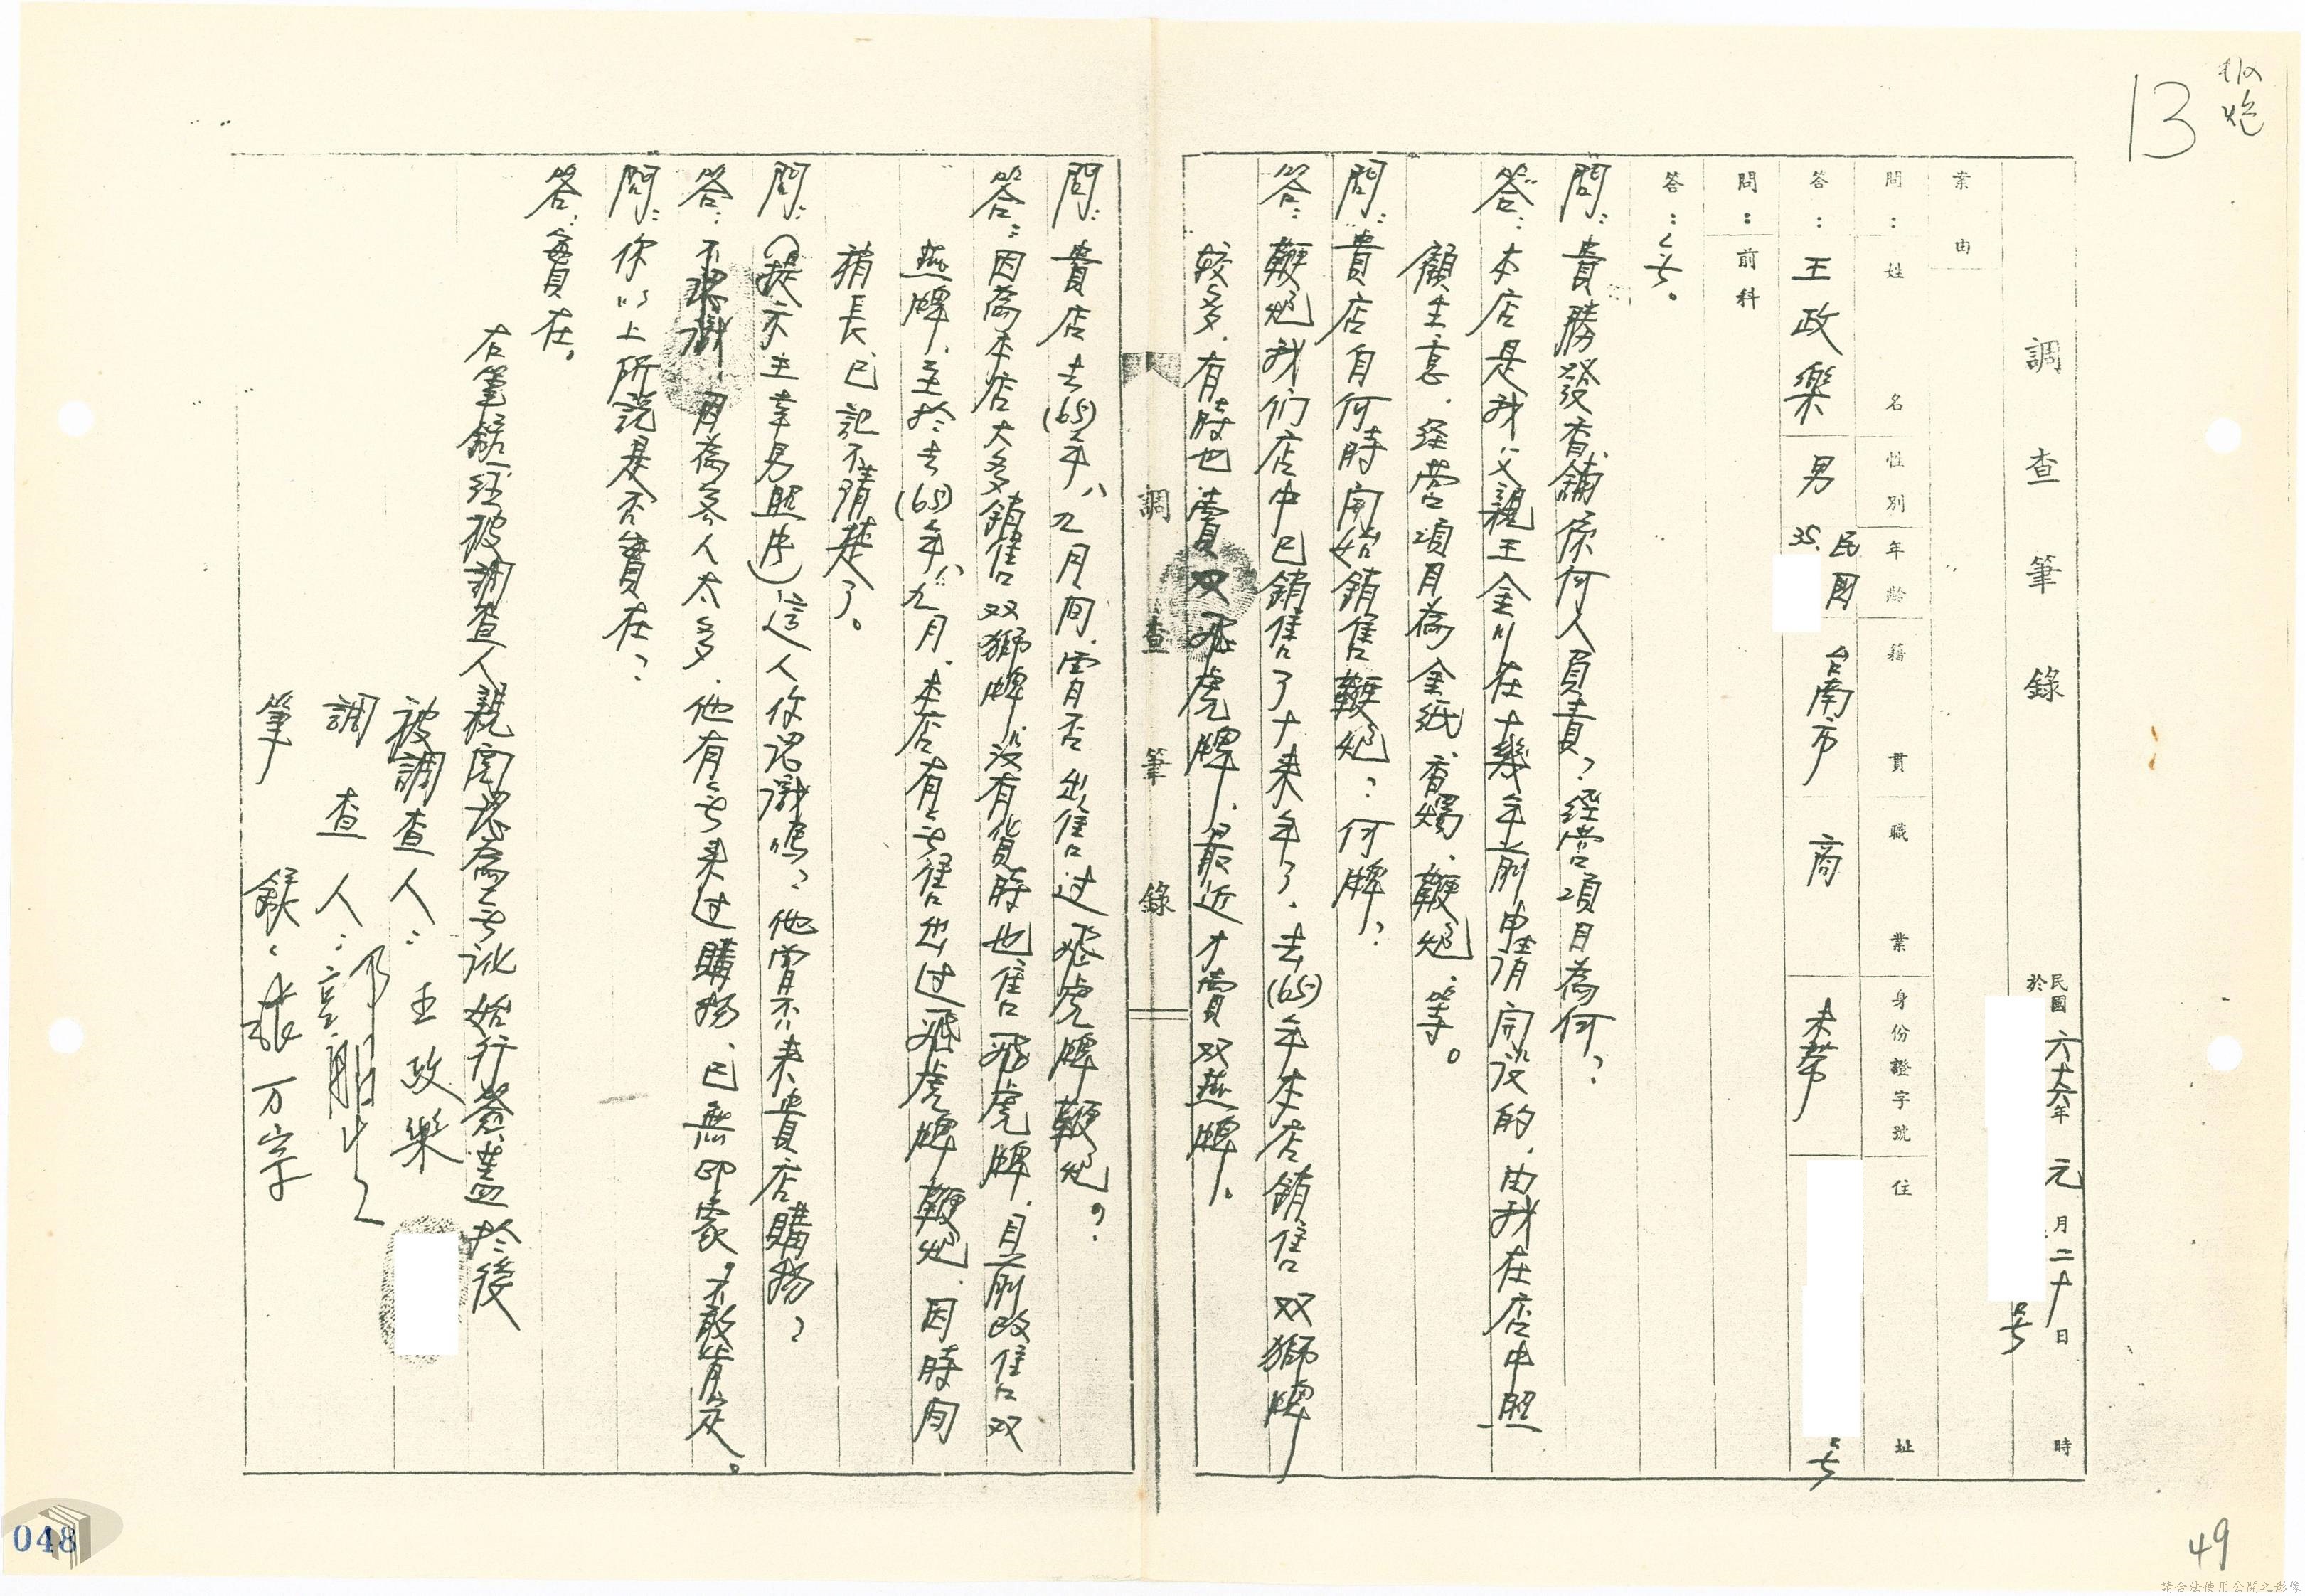 13
調查筆錄
民國六十六年元月二十日時
於
號
案由
問：姓名 性別 年齡 籍貫 職業 身份證字號 住址
答：王政樂 男 民國35. 台南市 商 未帶 號
問：前科
答：无。
問：貴勝發香舖係何人負責？經营項目為何？
答：本店是我父親王金川在十幾年前申請開设的，由我在店中照
顧生意，经营項目為金紙、香燭、鞭炮、等。
問：貴店自何時開始銷售鞭炮？何牌？
答：鞭炮我们店中已銷售了十来年了，去(65)年本店銷售双獅牌
較多，有時也賣双飛虎牌，最近才賣双燕牌。
調查筆錄
問：貴店去(65)年八、九月间，曾否出售过飛虎牌鞭炮？
答：因為本店大多銷售双獅牌，没有貨時也售飛虎牌，目前改售双
燕牌，至於去(65)年八、九月，本店有无售出过飛虎牌鞭炮，因時间
稍長，已記不清楚了。
問：(提示王幸男照片)這人你認識嗎？他曾否来貴店購物？
答：不認識，因為客人太多，他有无来过購物，已無印象，不敢肯定。
問：你以上所说是否實在？
答：實在。
右筆錄经被調查人親閱認為无訛始行簽蓋於後
被調查人：王政樂
調查人：
筆錄：張万字
048
49
請合法使用公開之影像